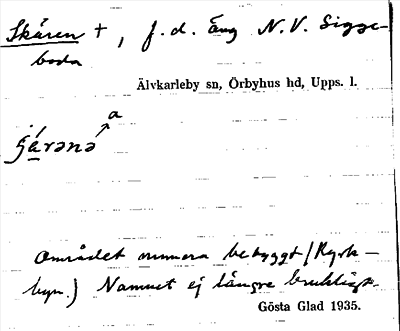 Skären +, f. d. äng N. V. Sigge-
boda
Älvkarleby sn, Örbyhus hd, Upps. l.
a
området numera bebyggt (Kyrk-
byn.) Namnet ej längre brukligt.
Gösta Glad 1935.